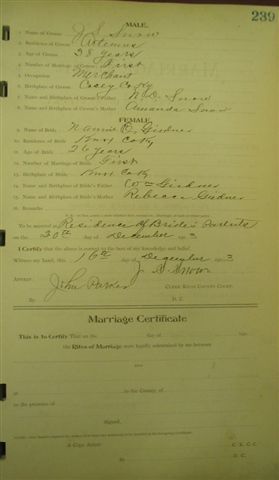 239
MALE.
1. Name of Groom J. S. Snow
2. Residence of Groom Artemus
3. Age of Groom 28 years
4. Number of Marriage of Groom First
5. Occupation Merchant
6. Birthplace of Groom Casey Co Ky
7. Name and Birthplace of Groom's Father N. D. Snow
8. Name and Birthplace of Groom's Mother Amanda Snow
FEMALE.
9. Name of Bride, Nannie Girdner
10. Residence of Bride Knox Co Ky
11. Age of Bride 26 years
12. Number of Marriage of Bride First
13. Birthplace of Bride Knox Co Ky
14. Name and Birthplace of Bride's Father Wm Girdner
15. Name and Birthplace of Bride's Mother Rebecca Girdner
16. Remarks
To be married at Residence of Bride's Parents
on the 20th day of December 3
I Certify that the above is correct to the best of my knowledge and belief.
Witness my hand, this 16th day of December 190 3
J. S. Snow
Attest:
John Parker CLERK KNOX COUNTY COURT.
By D. C.
Marriage Certificate
This is to Certify That on the day of
the Rites of Marriage were legally solemnized by me between
and
at in the County of
in the presence of
Signed,
A Copy Attest: C.C.C.
By D.C.